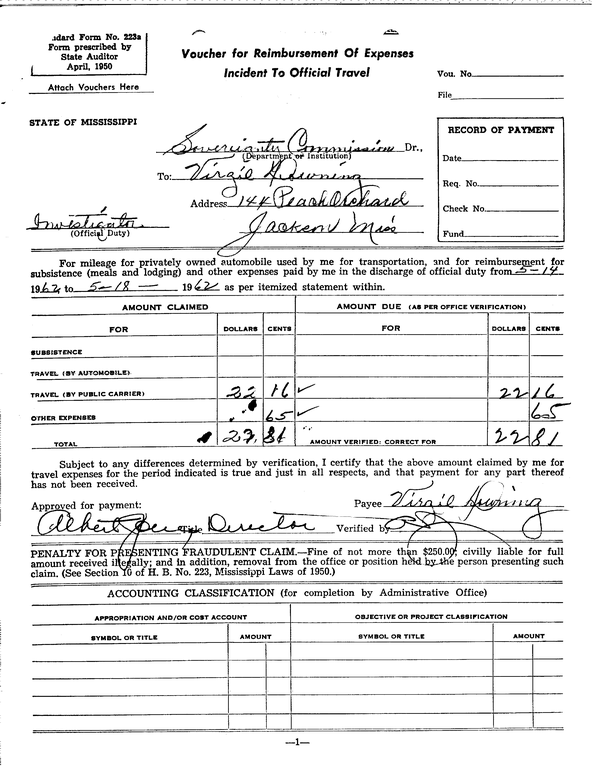 Standard Form No. 223a
Form prescribed by
State Auditor
April, 1950
Attach Vouchers Here
Voucher for Reimbursement Of Expenses
Incident To Official Travel
Vou. No.
File
STATE OF MISSISSIPPI
Sovereignty Commission Dr.,
(Department or Institution)
To: Virgil Downing
Address 144 Peach Orchard
Jackson Miss
Investigator
(Official Duty)
RECORD OF PAYMENT
Date
Req. No.
Check No.
Fund
For mileage for privately owned automobile used by me for transportation, and for reimbursement for
subsistence (meals and lodging) and other expenses paid by me in the discharge of official duty from 5-14
1962 to 5-18 — 1962 as per itemized statement within.
AMOUNT CLAIMED AMOUNT DUE (AS PER OFFICE VERIFICATION)
FOR DOLLARS CENTS FOR DOLLARS CENTS
SUBSISTENCE
TRAVEL (BY AUTOMOBILE)
TRAVEL (BY PUBLIC CARRIER) 22 16 ✓ 22 16
OTHER EXPENSES 65 ✓ 65
TOTAL 22, 81 AMOUNT VERIFIED: CORRECT FOR 22 81
Subject to any differences determined by verification, I certify that the above amount claimed by me for
travel expenses for the period indicated is true and just in all respects, and that payment for any part thereof
has not been received.
Approved for payment: Payee Virgil Downing
Albert Jones Title Director Verified by
PENALTY FOR PRESENTING FRAUDULENT CLAIM.—Fine of not more than $250.00; civilly liable for full
amount received illegally; and in addition, removal from the office or position held by the person presenting such
claim. (See Section 10 of H. B. No. 223, Mississippi Laws of 1950.)
ACCOUNTING CLASSIFICATION (for completion by Administrative Office)
APPROPRIATION AND/OR COST ACCOUNT OBJECTIVE OR PROJECT CLASSIFICATION
SYMBOL OR TITLE AMOUNT SYMBOL OR TITLE AMOUNT
—1—